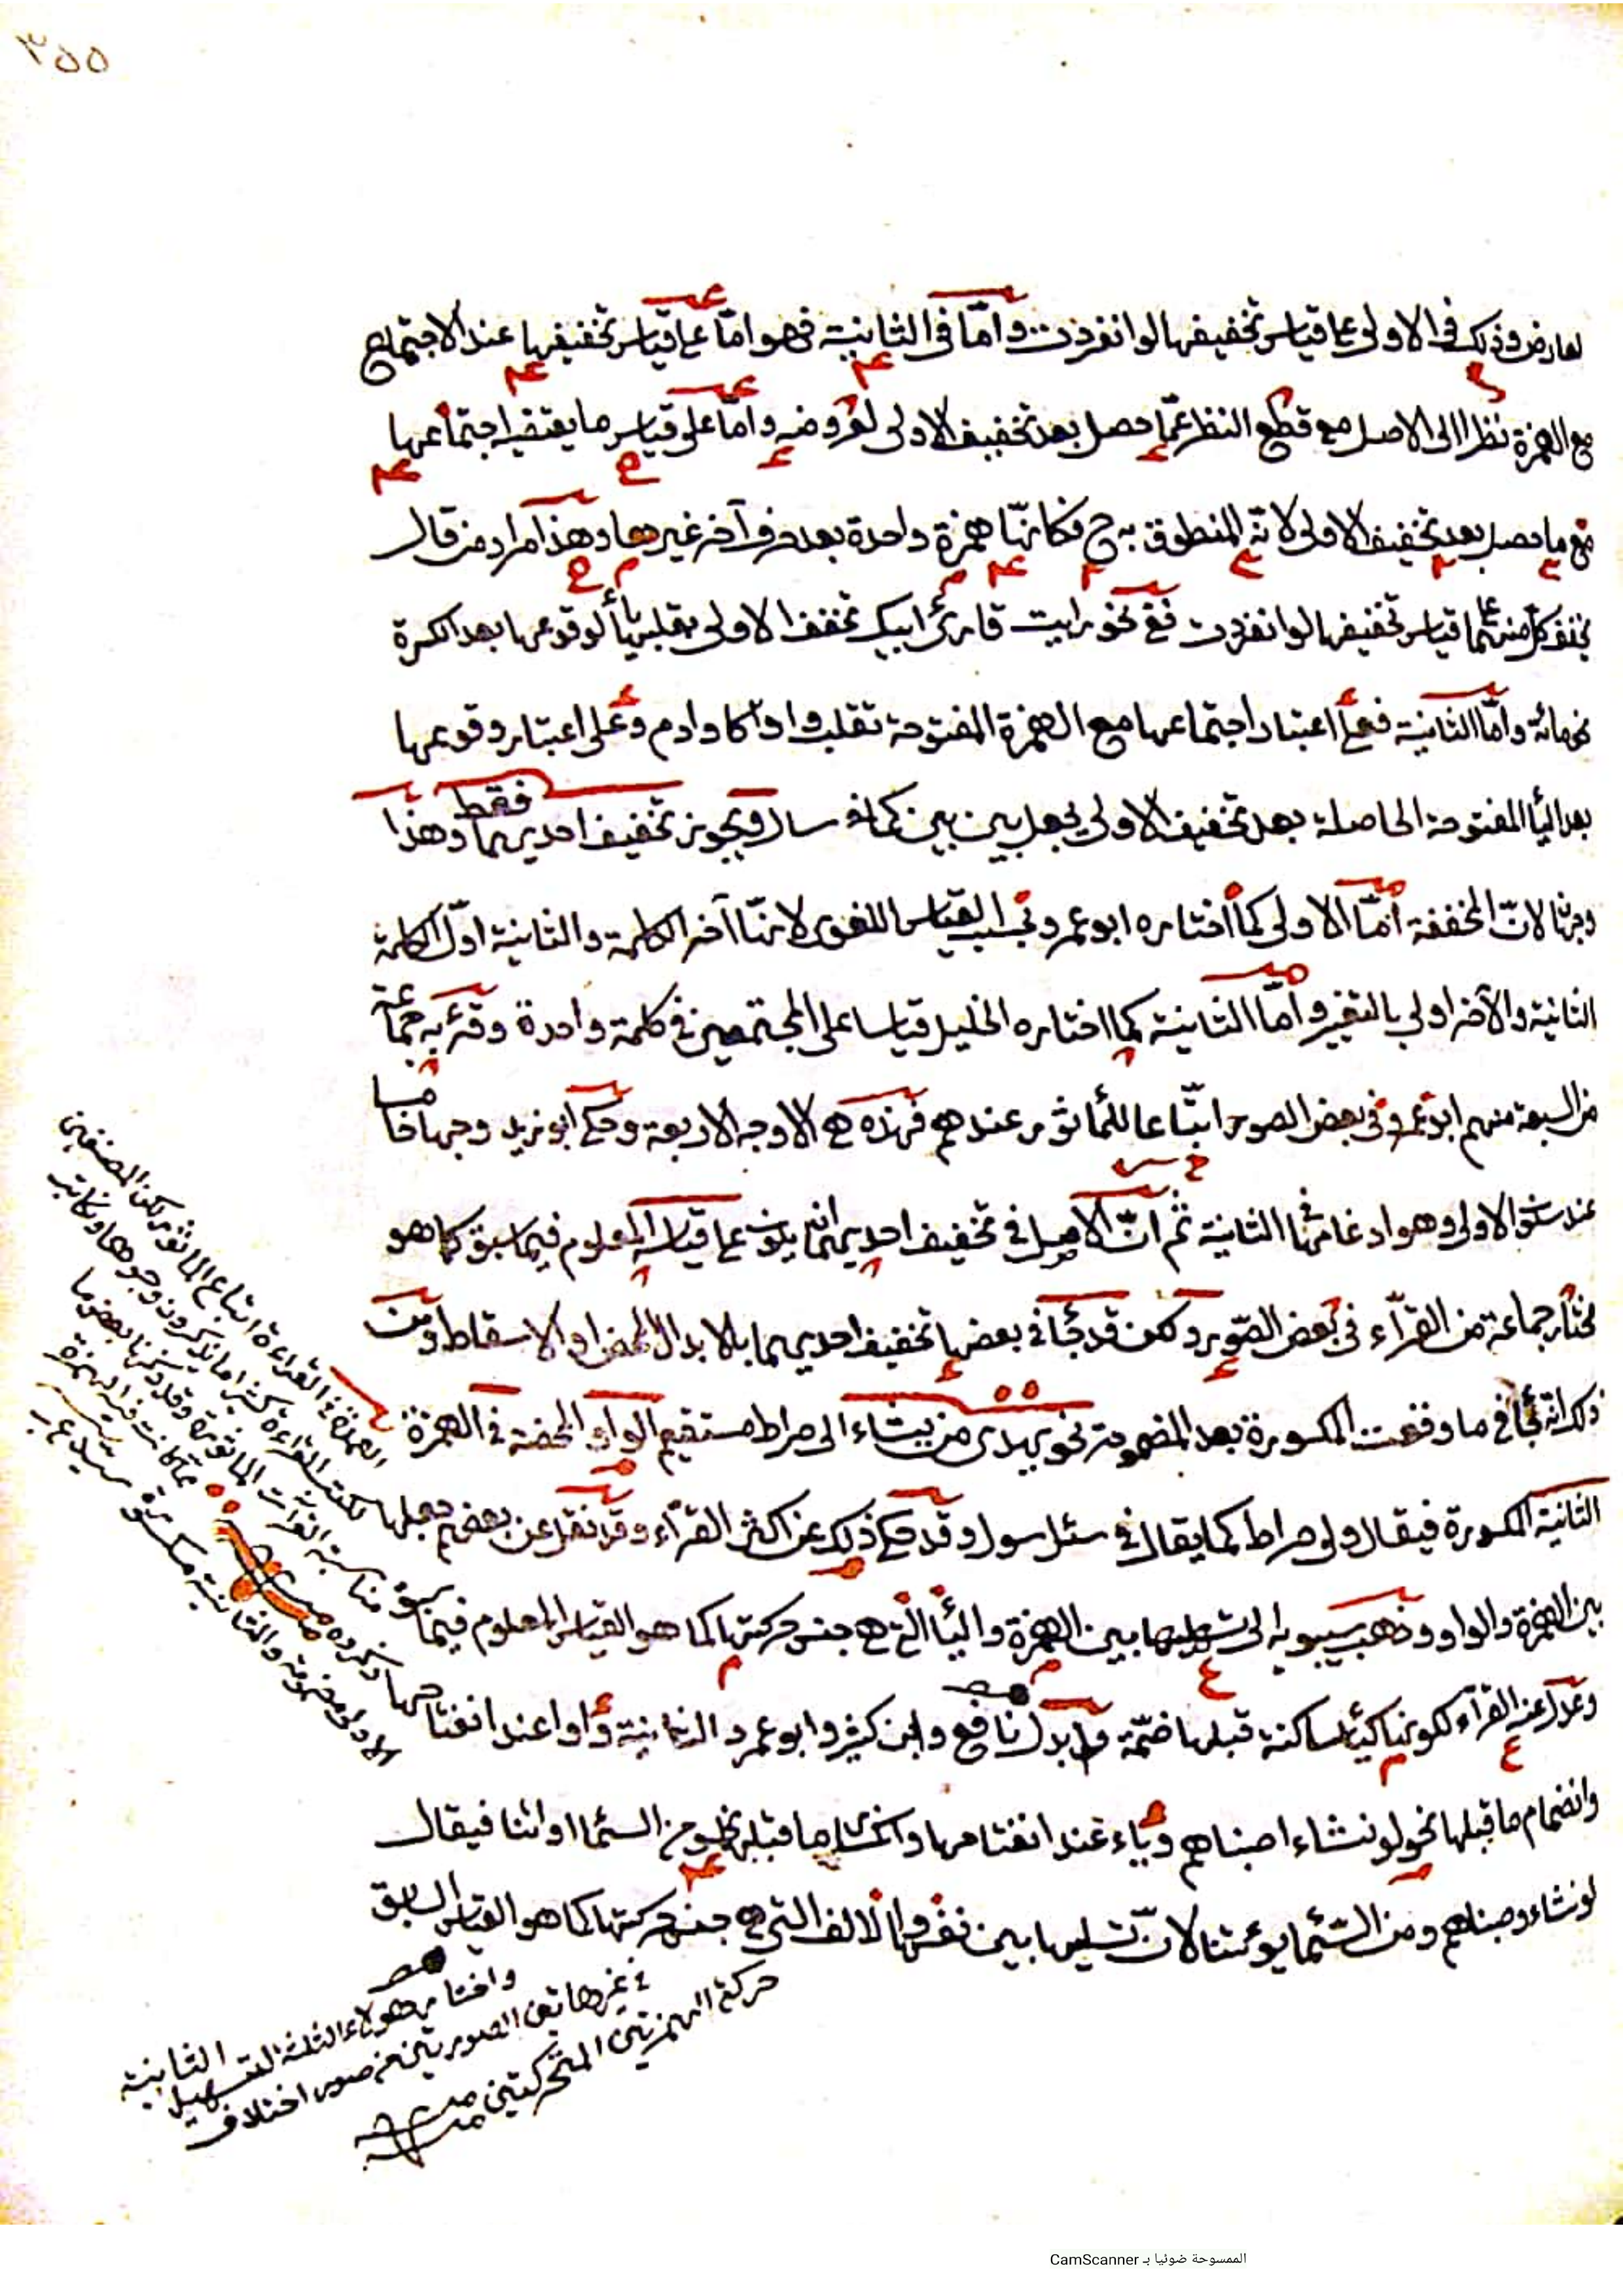 ٣٥٥
لعارض وذلك في الاولى على قياس تخفيفها لو انفردت واما في الثانية فهو امّا على قياس تخفيفها عند الاجتماع
مع الهمزة نظرا الى الاصل مع قطع النظر عمّا حصل بعد تخفيف الاولى لعروضه وامّا على قياس ما يقتضيه اجتماعها
مع ما حصل بعد تخفيف الاولى لانّه المنطوق به ح فكانّها همزة واحدة بعد حرف آخر غيرها وهذا مراد من قال
تخفف كل منهما على قياس تخفيفها لو انفردت ففي نحو رايت قارئ ابيك تخفف الاولى بقلبها ياء لوقوعها بعد الكسرة
كما في مائة وامّا الثانية فعلى اعتبار اجتماعها مع الهمزة المفتوحة تقلب واوا كاوادم وعلى اعتبار وقوعها
بعد الياء المفتوحة الحاصلة بعد تخفيف الاولى يجعل بين بين كما في سال ويجوز تخفيف احديهما فقط وهذا
وجهان لانّ المخففة امّا الاولى كما اختاره ابو عمرو بحسب القياس اللغوى لانها آخر الكلمة والثانية اوّل الكلمة
الثانية والآخر اولى بالتغيير وامّا الثانية كما اختاره الخليل قياسا على المجتمعين في كلمة واحدة وقرء به جماعة
من السبعة منهم ابو عمرو في بعض الصور اتّباعا للمأثور عندهم فهذه هي الاوجه الاربعة وحكى ابو زيد وجها خامسا
عند سكون الاولى وهو ادغامها في الثانية ثم انّ الاصل في تخفيف احديهما ان يكون على قياسه المعلوم فيما سبق كما هو
مختار جماعة من القرّاء في بعض الصّور ولكن قد جاء في بعضها تخفيف احديهما بالابدال المحض او الاسقاط ومن
ذلك انّه جاء في ما وقعت المكسورة بعد المضمومة نحو يهدى من يشاء الى صراط مستقيم الواو المحضة في الهمزة
الثانية المكسورة فيقال ولى صراط كما يقال في سئل سول وقد حكى ذلك عن اكثر القرّاء وقد نقل عن بعضهم جعلها
بين الهمزة والواو وذهب سيبويه الى تسهيلها بين الهمزة والياء الّتي هي جنس حركتها كما هو القياس المعلوم فيما سبق
وعدل عنه القرّاء لكونها كياء ساكنة قبلها ضمّة وابدل نافع وابن كثير وابو عمرو الثانية واوا عند انفتاحها
وانضمام ما قبلها نحو لو نشاء اصبناهم وياء عند انفتاحها وانكسار ما قبلها نحو من السماء او ائتنا فيقال
لو نشاء وصبناهم ومن السّماء يوئتنا لانّ تسهيلها بين نفسها والالف التي هي جنس حركتها كما هو القياس السابق
العمدة في القراءة اتباع المأثور لكن المصنفين
لكتب القراءة كثيرا ما يذكرون وجوها ونكاتا
مناسبة القراءات المأثورة وقد ذكرنا بعض ما
ذكروه
الاولى مضمومة والثانية مكسورة
واختار هؤلاء الثلثة التسهيل الثانية
في غير هاتين الصورتين من صور اختلاف
حركة الهمزتين المتحركتين
الممسوحة ضوئيا بـ CamScanner